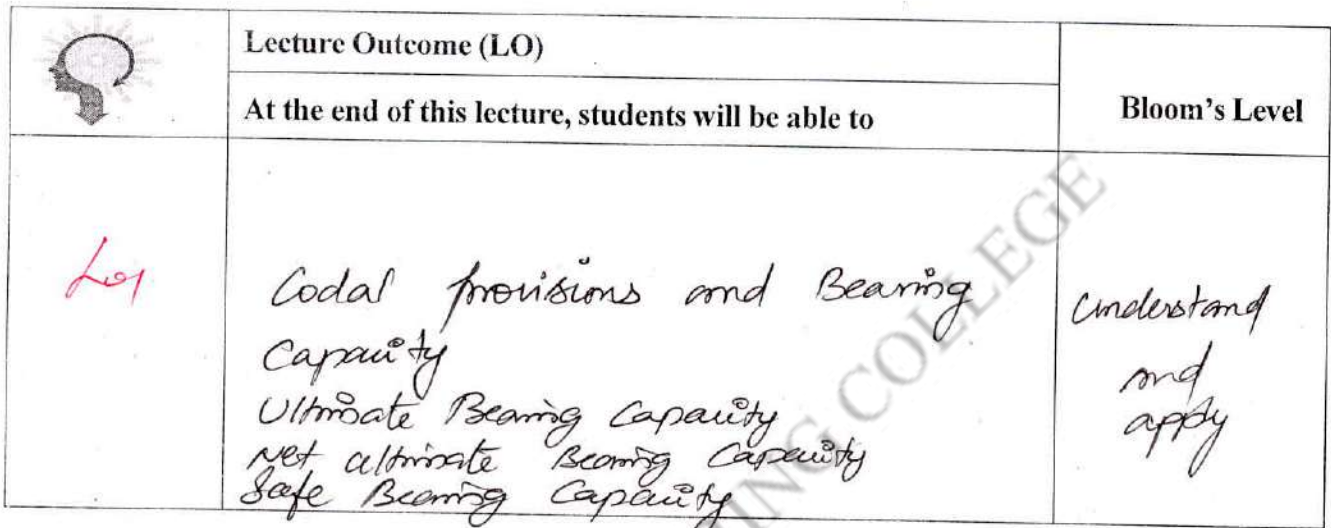 Lecture Outcome (LO)
At the end of this lecture, students will be able to
Bloom's Level
LO1
Codal provisions and Bearing
Capacity
Ultimate Bearing Capacity
Net ultimate Bearing Capacity
Safe Bearing Capacity
understand
and
apply
ING COLLEGE